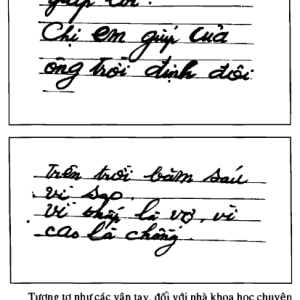 giúp tôi.
Chị em giúp của
ông trời định đôi
Trên trời băm sáu
vì sao
vì thấp là vợ, vì
cao là chồng.
Tương tự như các vân tay, đối với nhà khoa học chuyên